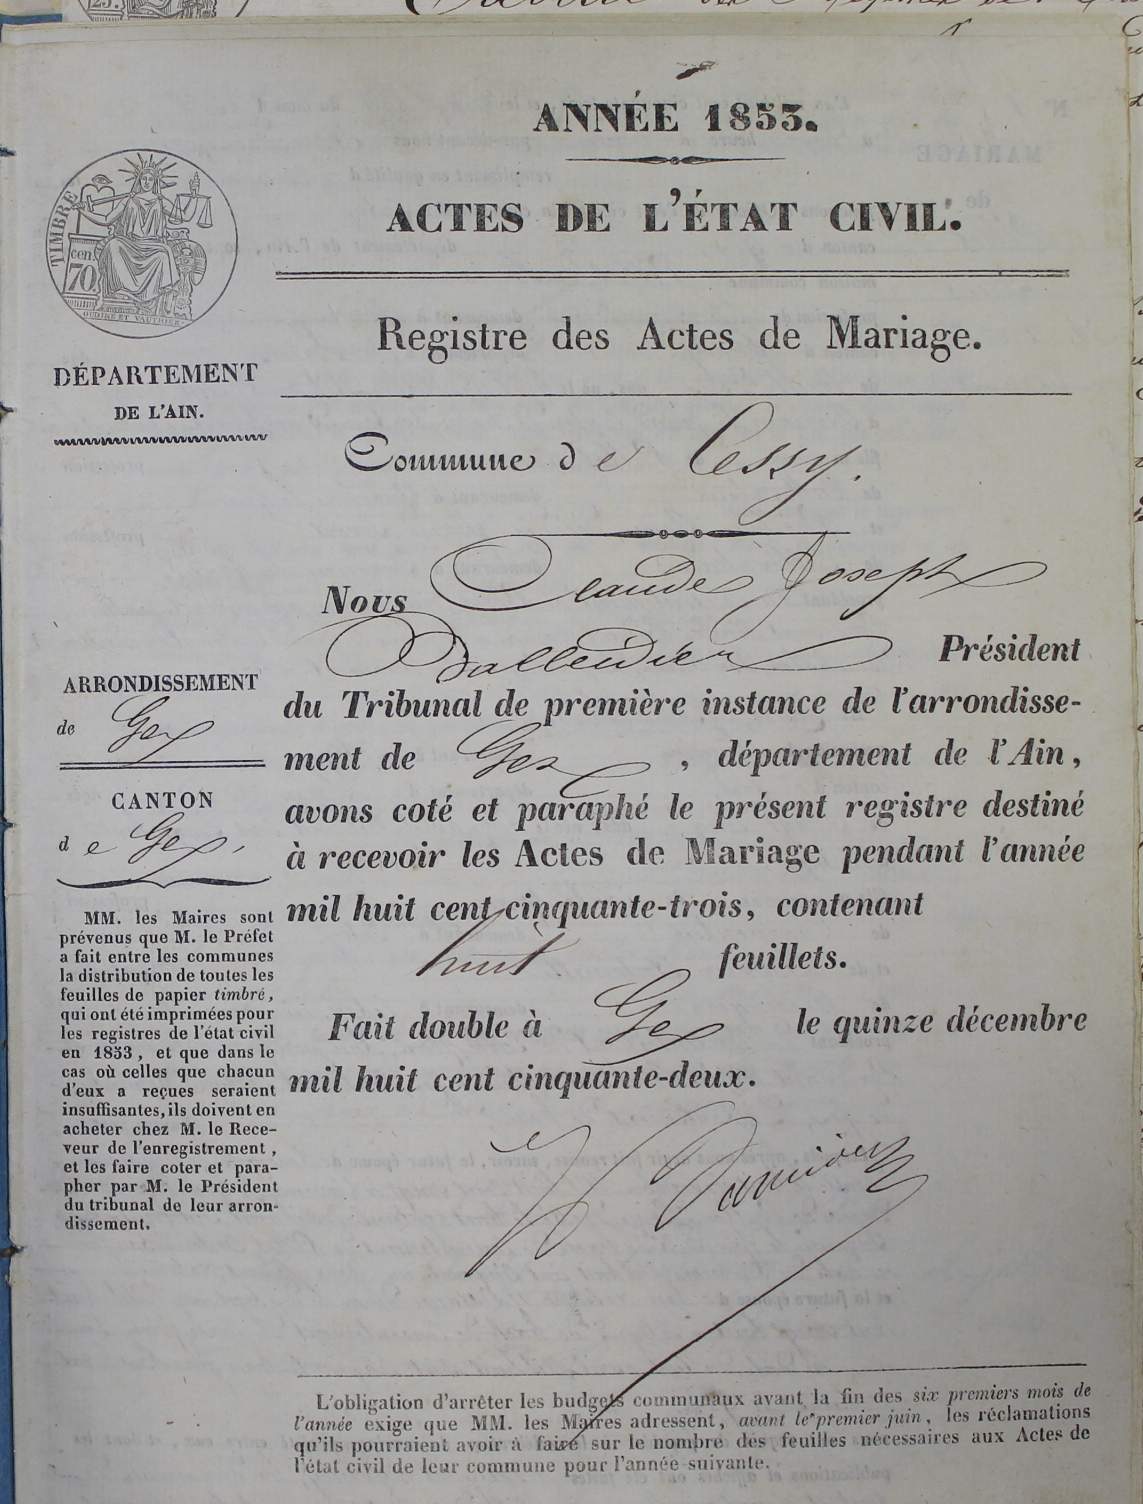 ANNÉE 1853.
ACTES DE L'ÉTAT CIVIL.
TIMBRE
cen.
70
OUDINÉ ET VAUTHIER.
Registre des Actes de Mariage.
DÉPARTEMENT
DE L'AIN.
Commune de Cessy.
Nous Claude Joseph
Président
ARRONDISSEMENT
de Gex
du Tribunal de première instance de l'arrondisse-
ment de Gex, département de l'Ain,
CANTON
de Gex,
avons coté et paraphé le présent registre destiné
à recevoir les Actes de Mariage pendant l'année
mil huit cent cinquante-trois, contenant
huit feuillets.
Fait double à Gex le quinze décembre
mil huit cent cinquante-deux.
MM. les Maires sont
prévenus que M. le Préfet
a fait entre les communes
la distribution de toutes les
feuilles de papier timbré,
qui ont été imprimées pour
les registres de l'état civil
en 1853, et que dans le
cas où celles que chacun
d'eux a reçues seraient
insuffisantes, ils doivent en
acheter chez M. le Rece-
veur de l'enregistrement,
et les faire coter et para-
pher par M. le Président
du tribunal de leur arron-
dissement.
L'obligation d'arrêter les budgets communaux avant la fin des six premiers mois de
l'année exige que MM. les Maires adressent, avant le premier juin, les réclamations
qu'ils pourraient avoir à faire sur le nombre des feuilles nécessaires aux Actes de
l'état civil de leur commune pour l'année suivante.